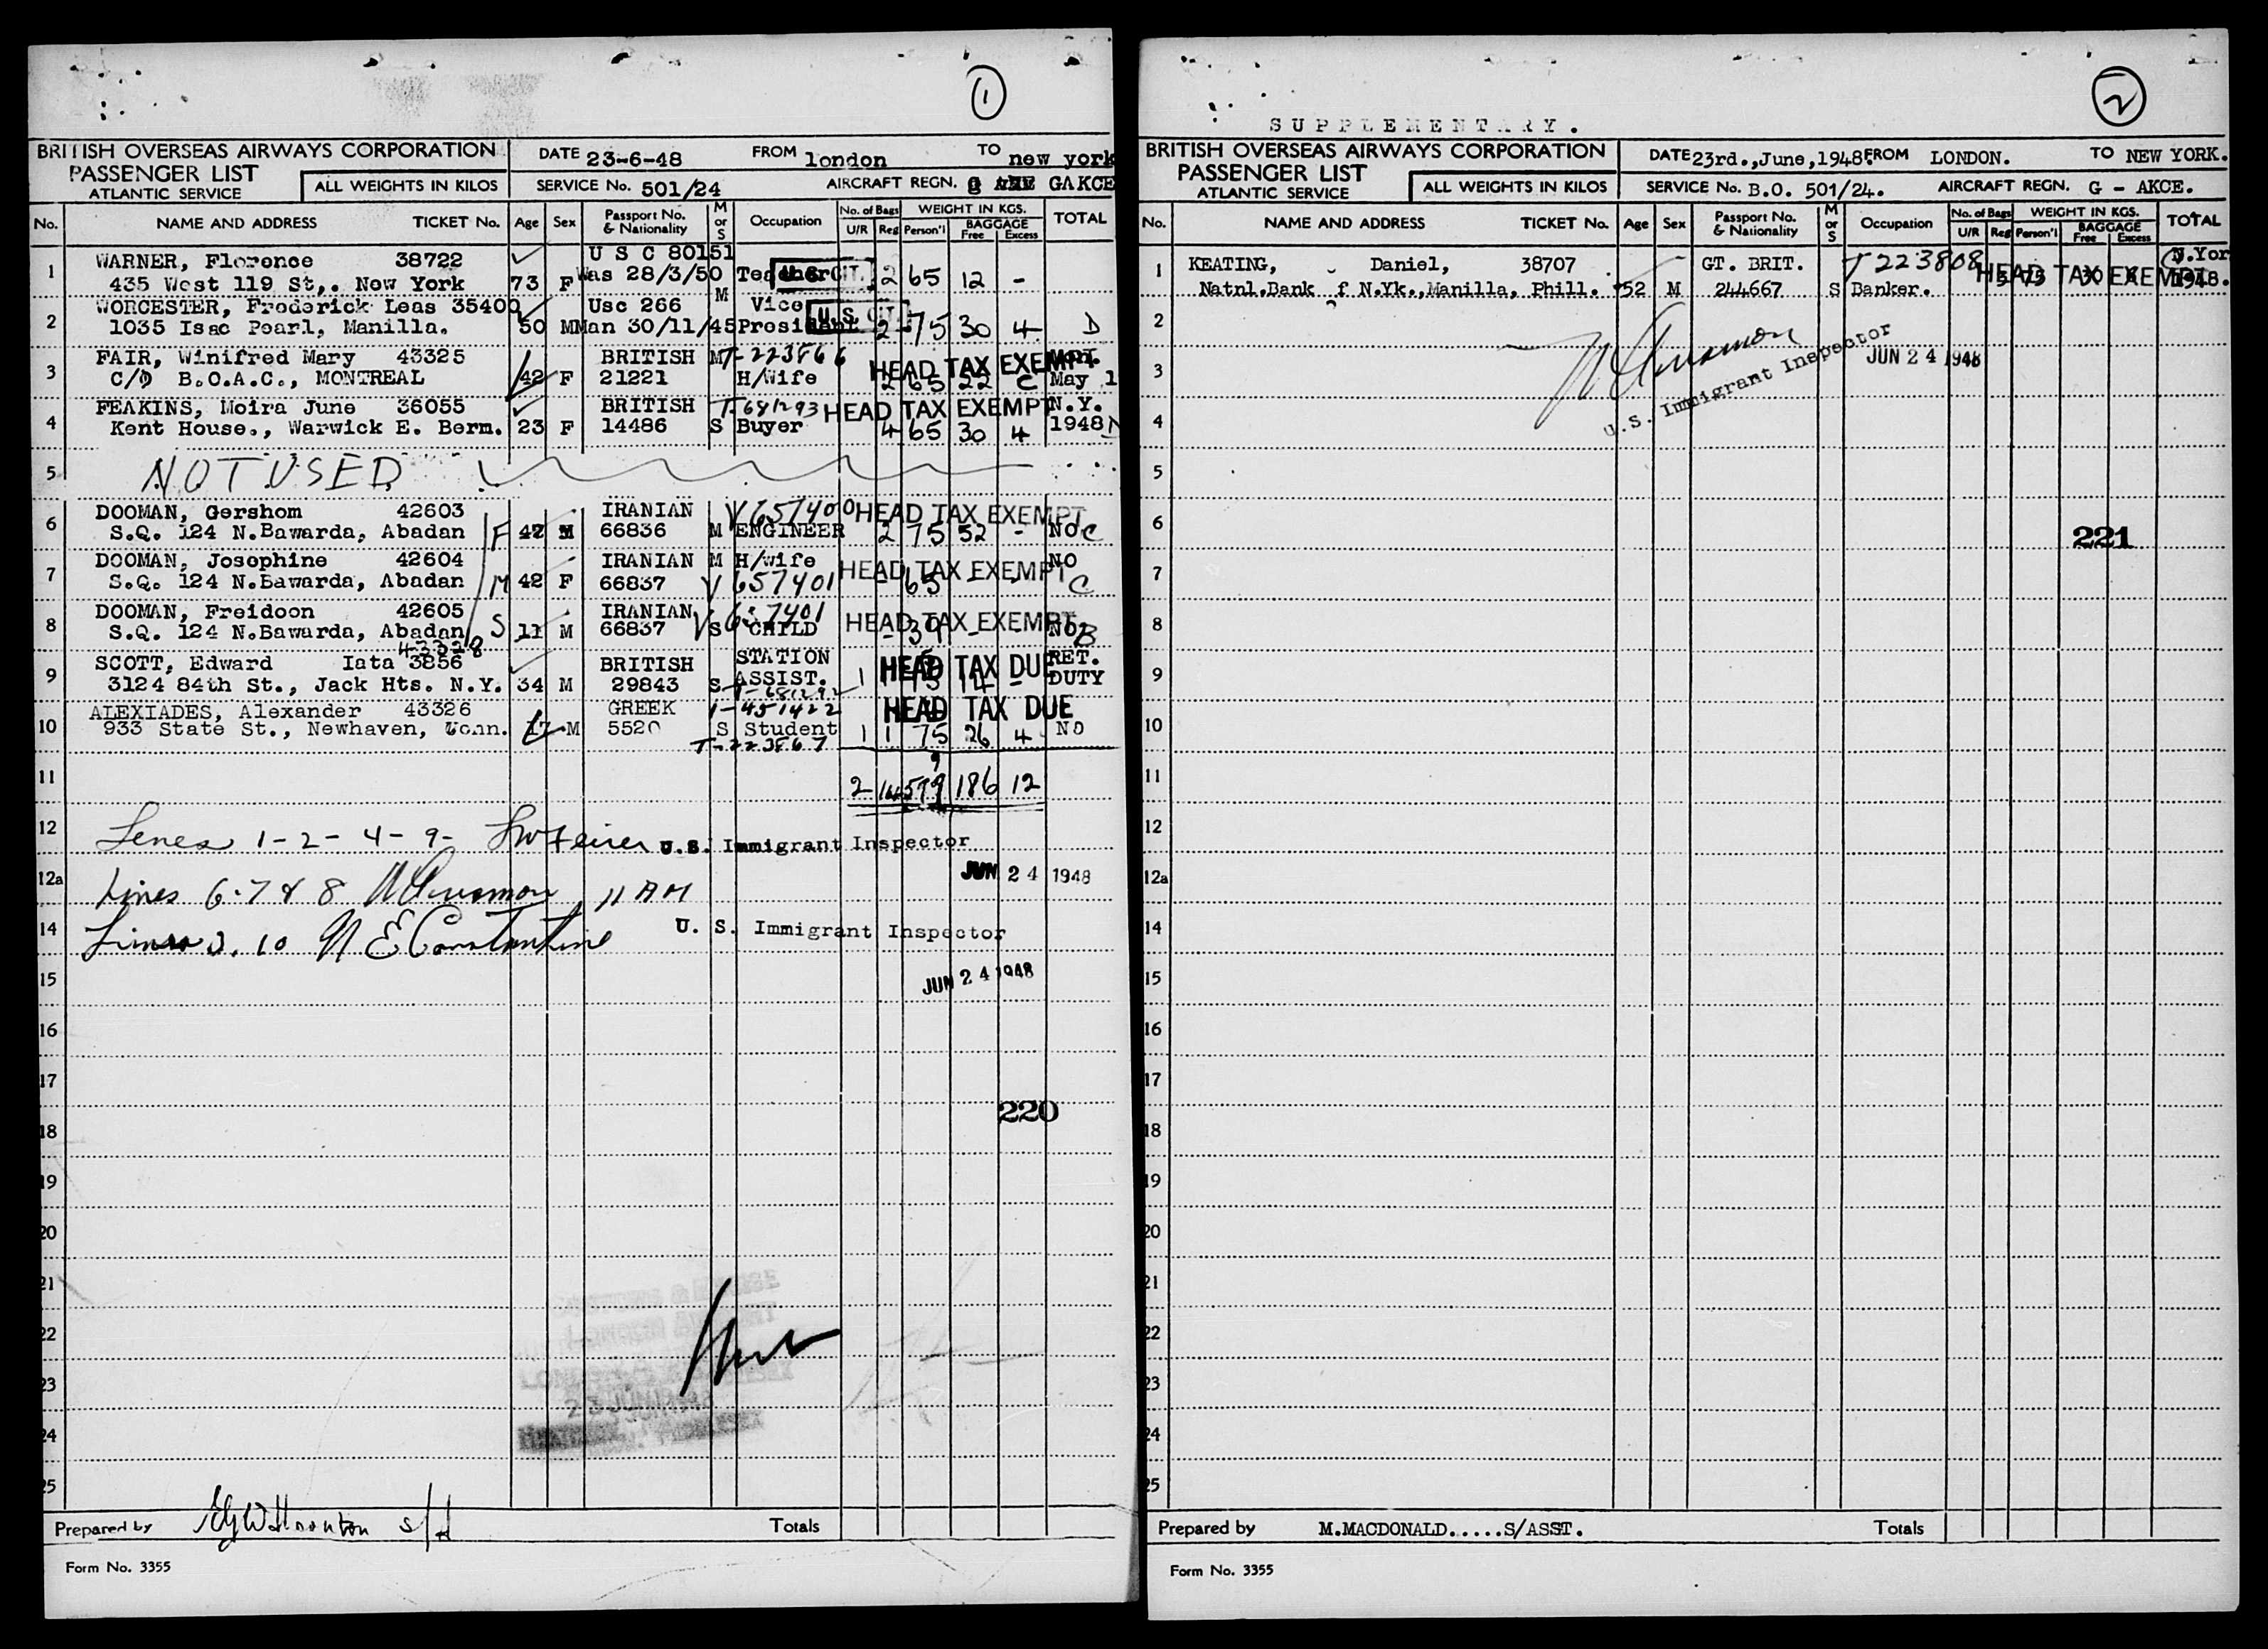 1
BRITISH OVERSEAS AIRWAYS CORPORATION
PASSENGER LIST
ATLANTIC SERVICE
ALL WEIGHTS IN KILOS
DATE 23-6-48 FROM london TO new york
SERVICE No. 501/24 AIRCRAFT REGN. GAKCE
No. NAME AND ADDRESS TICKET No. Age Sex Passport No. & Nationality M or S Occupation No. of Bags U/R Reg WEIGHT IN KGS. Person'l BAGGAGE Free Excess TOTAL
1 WARNER, Florence 38722 U S C 80151
435 West 119 St,. New York 73 F Was 28/3/50 Teacher U.S. CIT. 2 65 12 -
2 WORCESTER, Frederick Leas 35400 Usc 266 M Vice
1035 Isac Pearl, Manilla. 50 M Man 30/11/45 President U.S. CIT. 2 75 30 4 D
3 FAIR, Winifred Mary 43325 BRITISH M T-223866 HEAD TAX EXEMPT
C/O B.O.A.C., MONTREAL 42 F 21221 H/Wife 2 65 22 C May 1
4 FEAKINS, Moira June 36055 BRITISH T-681293 HEAD TAX EXEMPT N.Y.
Kent House., Warwick E. Berm. 23 F 14486 S Buyer 4 65 30 4 1948
5 NOT USED
6 DOOMAN, Gershom 42603 IRANIAN V657400 HEAD TAX EXEMPT
S.Q. 124 N.Bawarda, Abadan F 42 M 66836 M ENGINEER 2 75 52 - NO C
7 DOOMAN, Josophine 42604 IRANIAN M H/wife HEAD TAX EXEMPT NO
S.Q. 124 N.Bawarda, Abadan M 42 F 66837 V657401 - 65 - - C
8 DOOMAN, Freidoon 42605 IRANIAN V657401 HEAD TAX EXEMPT
S.Q. 124 N.Bawarda, Abadan S 11 M 66837 S CHILD - 39 - - NO B
43328
9 SCOTT, Edward Iata 3856 BRITISH STATION HEAD TAX DUE RET.
3124 84th St., Jack Hts. N.Y. 34 M 29843 S ASSIST. 1 1 75 14 - DUTY
T-681292
10 ALEXIADES, Alexander 43326 GREEK 1-451422 HEAD TAX DUE
933 State St., Newhaven, Conn. 17 M 5520 S Student 1 1 75 26 4 NO
T-223867
11 2 14 599 186 12
12 Lines 1-2-4-9- U.S. Immigrant Inspector
JUN 24 1948
12a Lines 6-7 & 8 11 AM
14 Lines 3. 10 N E Constantine U. S. Immigrant Inspector
15 JUN 24 1948
16
17
220
18
19
20
21
22
23
24
25
Prepared by Totals
Form No. 3355
2
SUPPLEMENTARY.
BRITISH OVERSEAS AIRWAYS CORPORATION
PASSENGER LIST
ATLANTIC SERVICE
ALL WEIGHTS IN KILOS
DATE 23rd.,June,1948. FROM LONDON. TO NEW YORK.
SERVICE No. B.O. 501/24. AIRCRAFT REGN. G - AKCE.
No. NAME AND ADDRESS TICKET No. Age Sex Passport No. & Nationality M or S Occupation No. of Bags U/R Reg WEIGHT IN KGS. Person'l BAGGAGE Free Excess TOTAL
1 KEATING, Daniel, 38707 GT. BRIT. T223808 HEAD TAX EXEMPT N.Yor
Natnl.Bank of N.Yk.,Manilla, Phill. 52 M 244667 S Banker. 75 30 1948.
2
3 JUN 24 1948
U.S. Immigrant Inspector
4
5
6
221
7
8
9
10
11
12
12a
14
15
16
17
18
19
20
21
22
23
24
25
Prepared by M.MACDONALD.....S/ASST. Totals
Form No. 3355